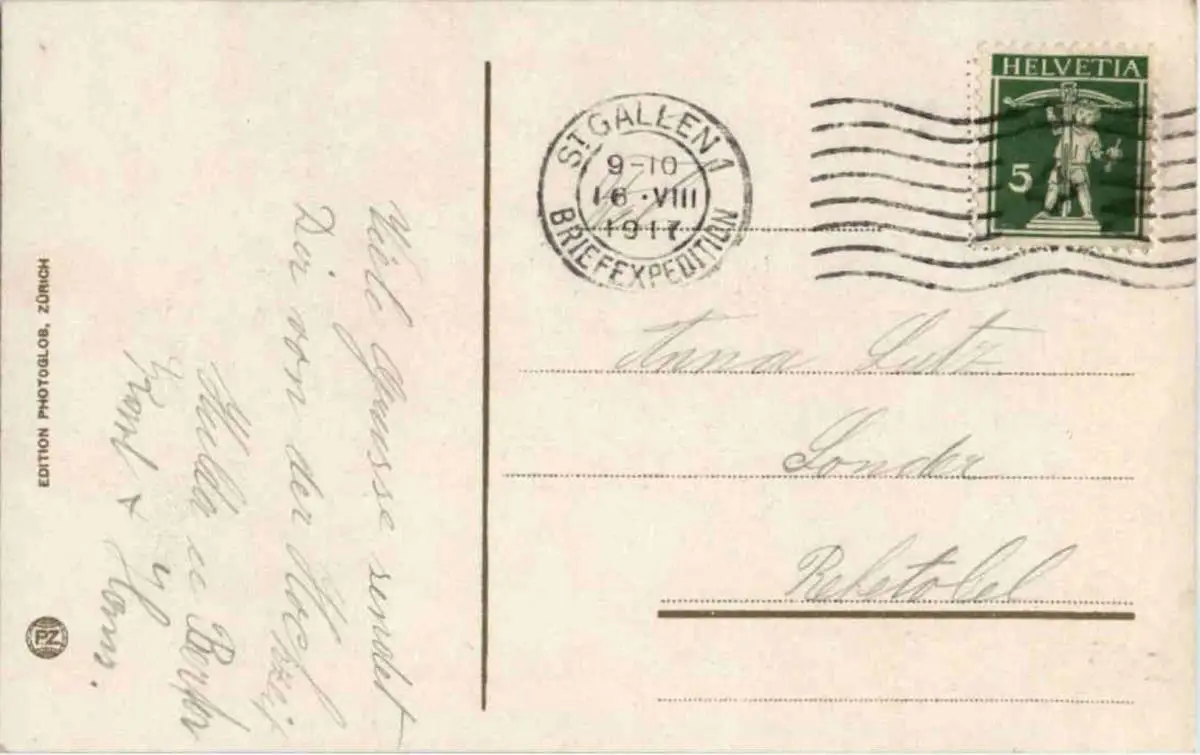 HELVETIA
5
ST. GALLEN 1
9-10
16·VIII
1917
BRIEFEXPEDITION
Anna Lutz
Sonder
Rehetobel
Viele Grüsse sendet
Dir von der Hochzeit
Hulda u.
EDITION PHOTOGLOB, ZÜRICH
PZ